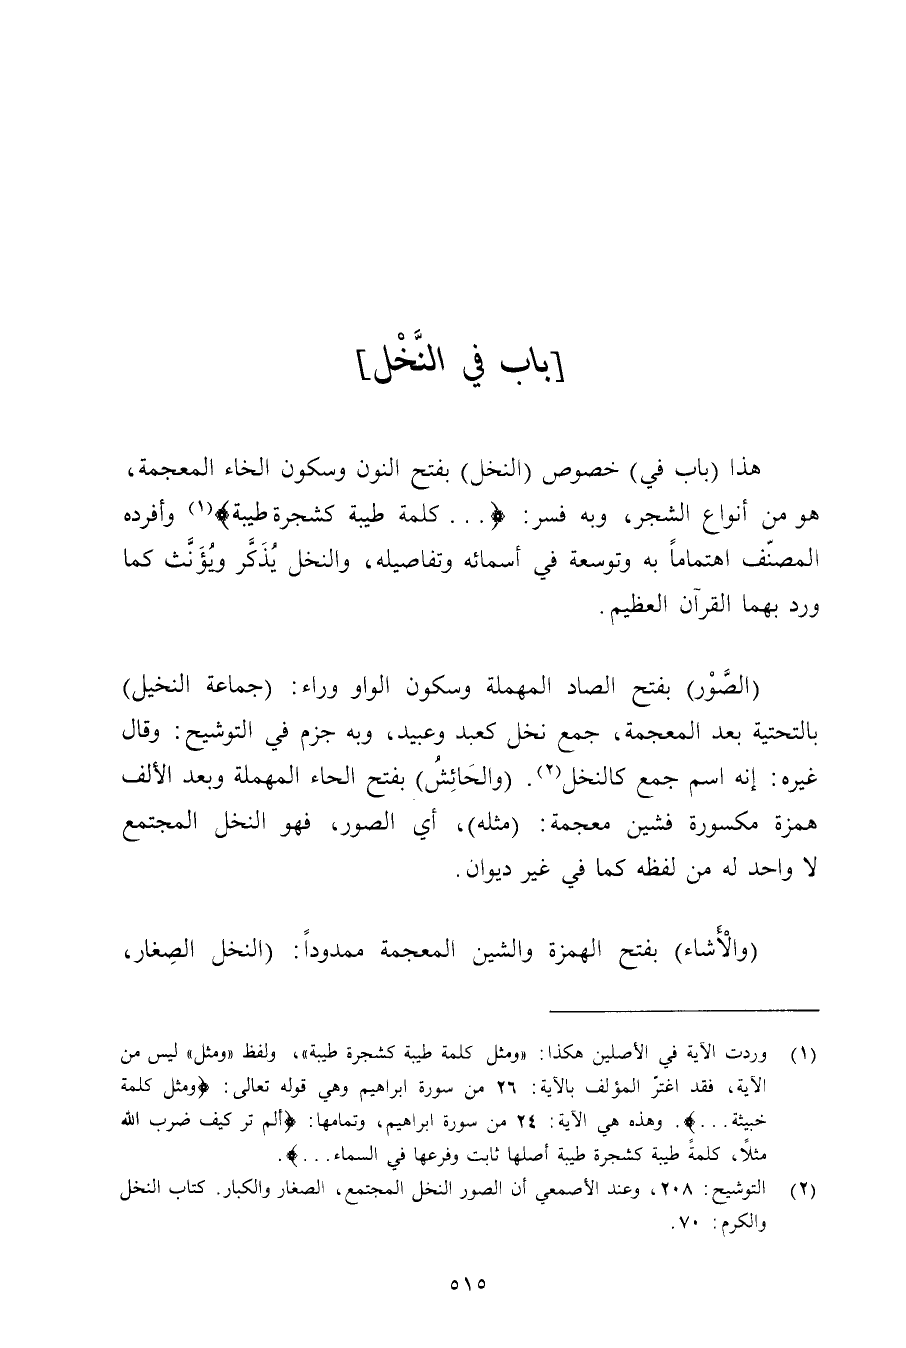 [باب في النَّخْل]
هذا (باب في) خصوص (النخل) بفتح النون وسكون الخاء المعجمة،
هو من أنواع الشجر، وبه فسر: ﴿... كلمة طيبة كشجرة طيبة﴾(١) وأفرده
المصنّف اهتماماً به وتوسعة في أسمائه وتفاصيله، والنخل يُذَكَّر ويُؤَنَّث كما
ورد بهما القرآن العظيم.
(الصَّوْر) بفتح الصاد المهملة وسكون الواو وراء: (جماعة النخيل)
بالتحتية بعد المعجمة، جمع نخل كعبد وعبيد، وبه جزم في التوشيح: وقال
غيره: إنه اسم جمع كالنخل(٢). (والحَائِشُ) بفتح الحاء المهملة وبعد الألف
همزة مكسورة فشين معجمة: (مثله)، أي الصور، فهو النخل المجتمع
لا واحد له من لفظه كما في غير ديوان.
(والْأَشاء) بفتح الهمزة والشين المعجمة ممدوداً: (النخل الصِغار،
(١) وردت الآية في الأصلين هكذا: «ومثل كلمة طيبة كشجرة طيبة»، ولفظ «ومثل» ليس من
الآية، فقد اغترّ المؤلف بالآية: ٢٦ من سورة ابراهيم وهي قوله تعالى: ﴿ومثل كلمة
خبيثة...﴾. وهذه هي الآية: ٢٤ من سورة ابراهيم، وتمامها: ﴿ألم تر كيف ضرب الله
مثلًا، كلمةً طيبة كشجرة طيبة أصلها ثابت وفرعها في السماء...﴾.
(٢) التوشيح: ٢٠٨، وعند الأصمعي أن الصور النخل المجتمع، الصغار والكبار. كتاب النخل
والكرم: ٧٠.
٥١٥